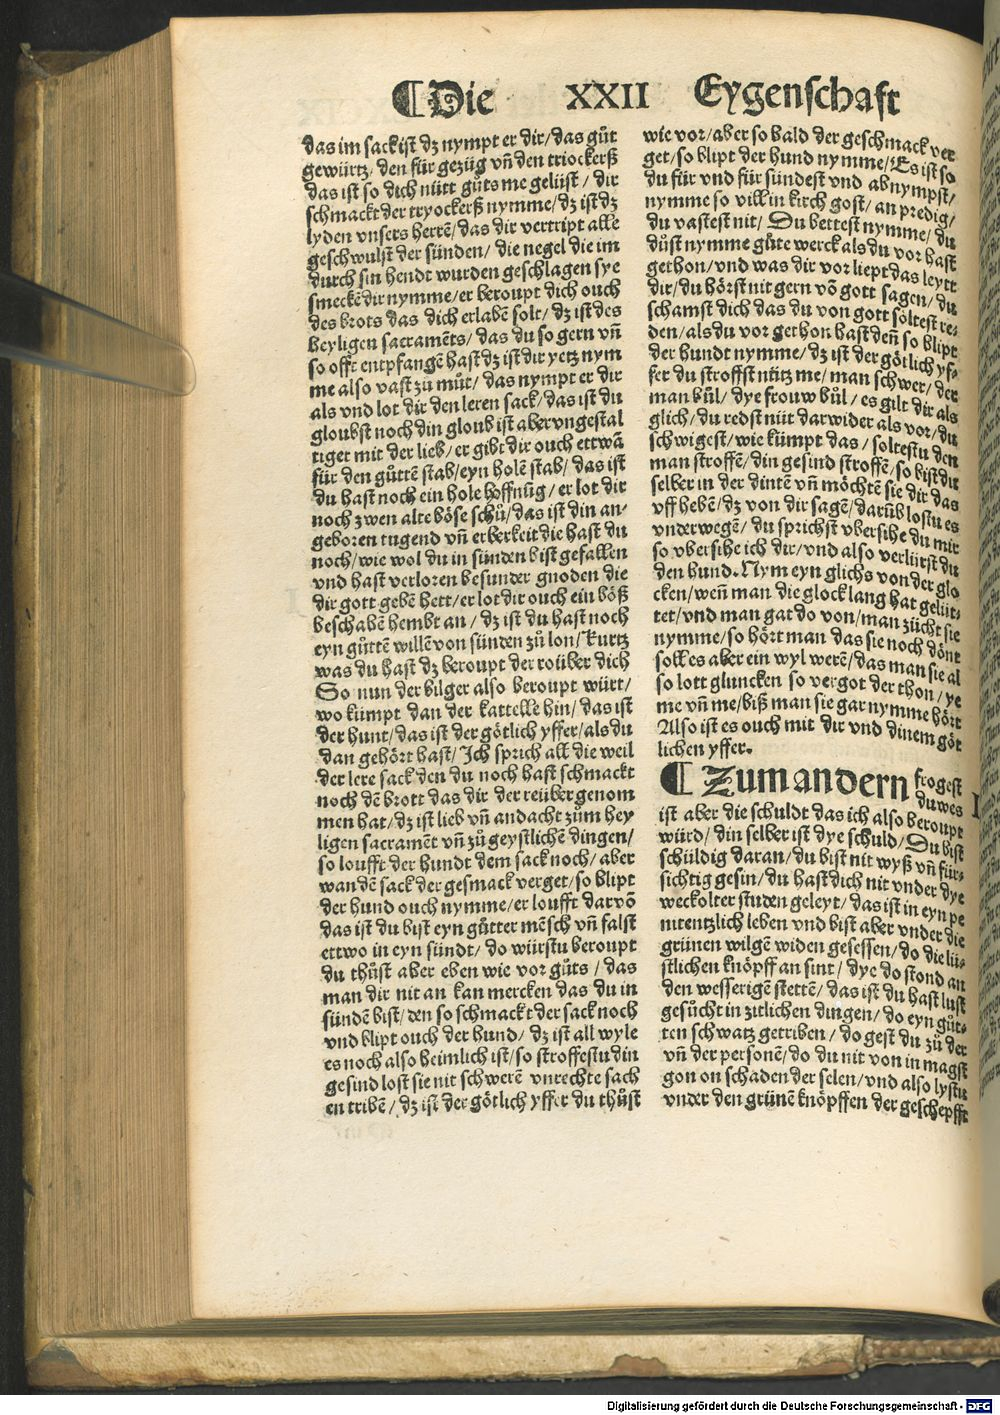 ¶ Die XXII Eygenschaft
das im sack ist dz nympt er dir/ das gůt
gewürtz/ den für gezüg vñ den triockerß
das ist so dich nütt gůts me gelüst/ dir
schmackt der tryockerß nymme/ dz ist dz
lyden vnsers herrē/ das dir vertript alle
geschwulst der sünden/ die negel die im
durch sin hendt wurden geschlagen sye
smeckē dir nymme/ er beroupt dich ouch
des brots das dich erlabē solt/ dz ist des
heyligen sacramēts/ das du so gern vñ
so offt entpfangē hast dz ist dir yetz nym
me also vast zů můt/ das nympt er dir
als vnd lot dir den leren sack/ das ist du
gloubst noch din gloub ist aber vngestal
tiget mit der lieb/ er gibt dir ouch ettwā
für den gůttē stab/ eyn holē stab/ das ist
du hast noch ein hole hoffnūg/ er lot dir
noch zwen alte böse schů/ das ist din an-
geboren tugend vñ erberkeit die hast du
noch/ wie wol du in sünden bist gefallen
vnd hast verloren besunder gnoden die
dir gott gebē hett/ er lot dir ouch ein böß
beschabē hembt an/ dz ist du hast noch
eyn gůttē willē von sünden zů lon/ kurtz
was du hast dz beroupt der roüber dich
So nun der bilger also beroupt würt/
wo kümpt dan der kattelle hin/ das ist
der hunt/ das ist der götlich yffer/ als du
dan gehört hast/ Ich sprich all die weil
der lere sack den du noch hast schmackt
noch dē brott das dir der reüber genom
men hat/ dz ist lieb vñ andacht zům hey
ligen sacramēt vñ zů geystlichē dingen/
so loufft der hundt dem sack noch/ aber
wan dē sack der gesmack verget/ so blipt
der hund ouch nymme/ er loufft darvō
das ist du bist eyn gůtter mēsch vñ falst
ettwo in eyn sündt/ do würstu beroupt
du thůst aber eben wie vor gůts/ das
man dir nit an kan mercken das du in
sündē bist/ den so schmackt der sack noch
vnd blipt ouch der hund/ dz ist all wyle
es noch also heimlich ist/ so stroffestu din
gesind lost sie nit schwerē vnrechte sach
en tribē/ dz ist der götlich yffer du thůst
wie vor/ aber so bald der geschmack ver
get/ so blipt der hund nymme/ Es ist so
du für vnd für sündest vnd abnympst/
nymme so vill in kirch gost/ an predig/
du vastest nit/ Du bettest nymme/ du
důst nymme gůte werck als du vor hast
gethon/ vnd was dir vor liept das leytt
dir/ du hörst nit gern vō gott sagen/ du
schamst dich das du von gott söltest re-
den/ als du vor gethon hast deñ so blipt
der hundt nymme/ dz ist der götlich yf-
fer du stroffst nütz me/ man schwer/ der
man bůl/ dye frouw bůl/ es gilt dir als
glich/ du redst nüt darwider als vor/ du
schwigest/ wie kümpt das/ soltestu den
man stroffē/ din gesind stroffē/ so bist du
selber in der dintē vñ möchtē sie dir das
vff hebē/ dz von dir sagē/ darūb lostu es
vnderwegē/ du sprichst vbersihe du mir
so vbersihe ich dir/ vnd also verlürst du
den hund. Nym eyn glichs von der glo
cken/ weñ man die glock lang hat gelüt-
tet/ vnd man gat do von/ man zücht sie
nymme/ so hört man das sie noch dönt
soll es aber ein wyl werē/ das man sie al
so lott gluncken so vergot der thon/ ye
me vñ me/ biß man sie gar nymme hört
Also ist es ouch mit dir vnd dinem göt
lichen yffer.
¶ Zum andern frogest
du wes
ist aber die schuldt das ich also beroupt
würd/ din selber ist dye schuld/ Du bist
schüldig daran/ du bist nit wyß vñ für-
sichtig gesin/ du hast dich nit vnder dye
weckolter studen geleyt/ das ist in eyn pe
nitentzlich leben vnd bist aber vnder die
grünen wilgē widen gesessen/ do die lü-
stlichen knöpff an sint/ dye do stond an
den wesserigē stettē/ das ist du hast lust
gesůcht in zitlichen dingen/ do eyn gůt-
ten schwatz getriben/ do gest du zů der
vñ der personē/ do du nit von in magst
gon on schaden der selen/ vnd also lystu
vnder den grünē knöpffen der geschepfft
Digitalisierung gefördert durch die Deutsche Forschungsgemeinschaft - DFG